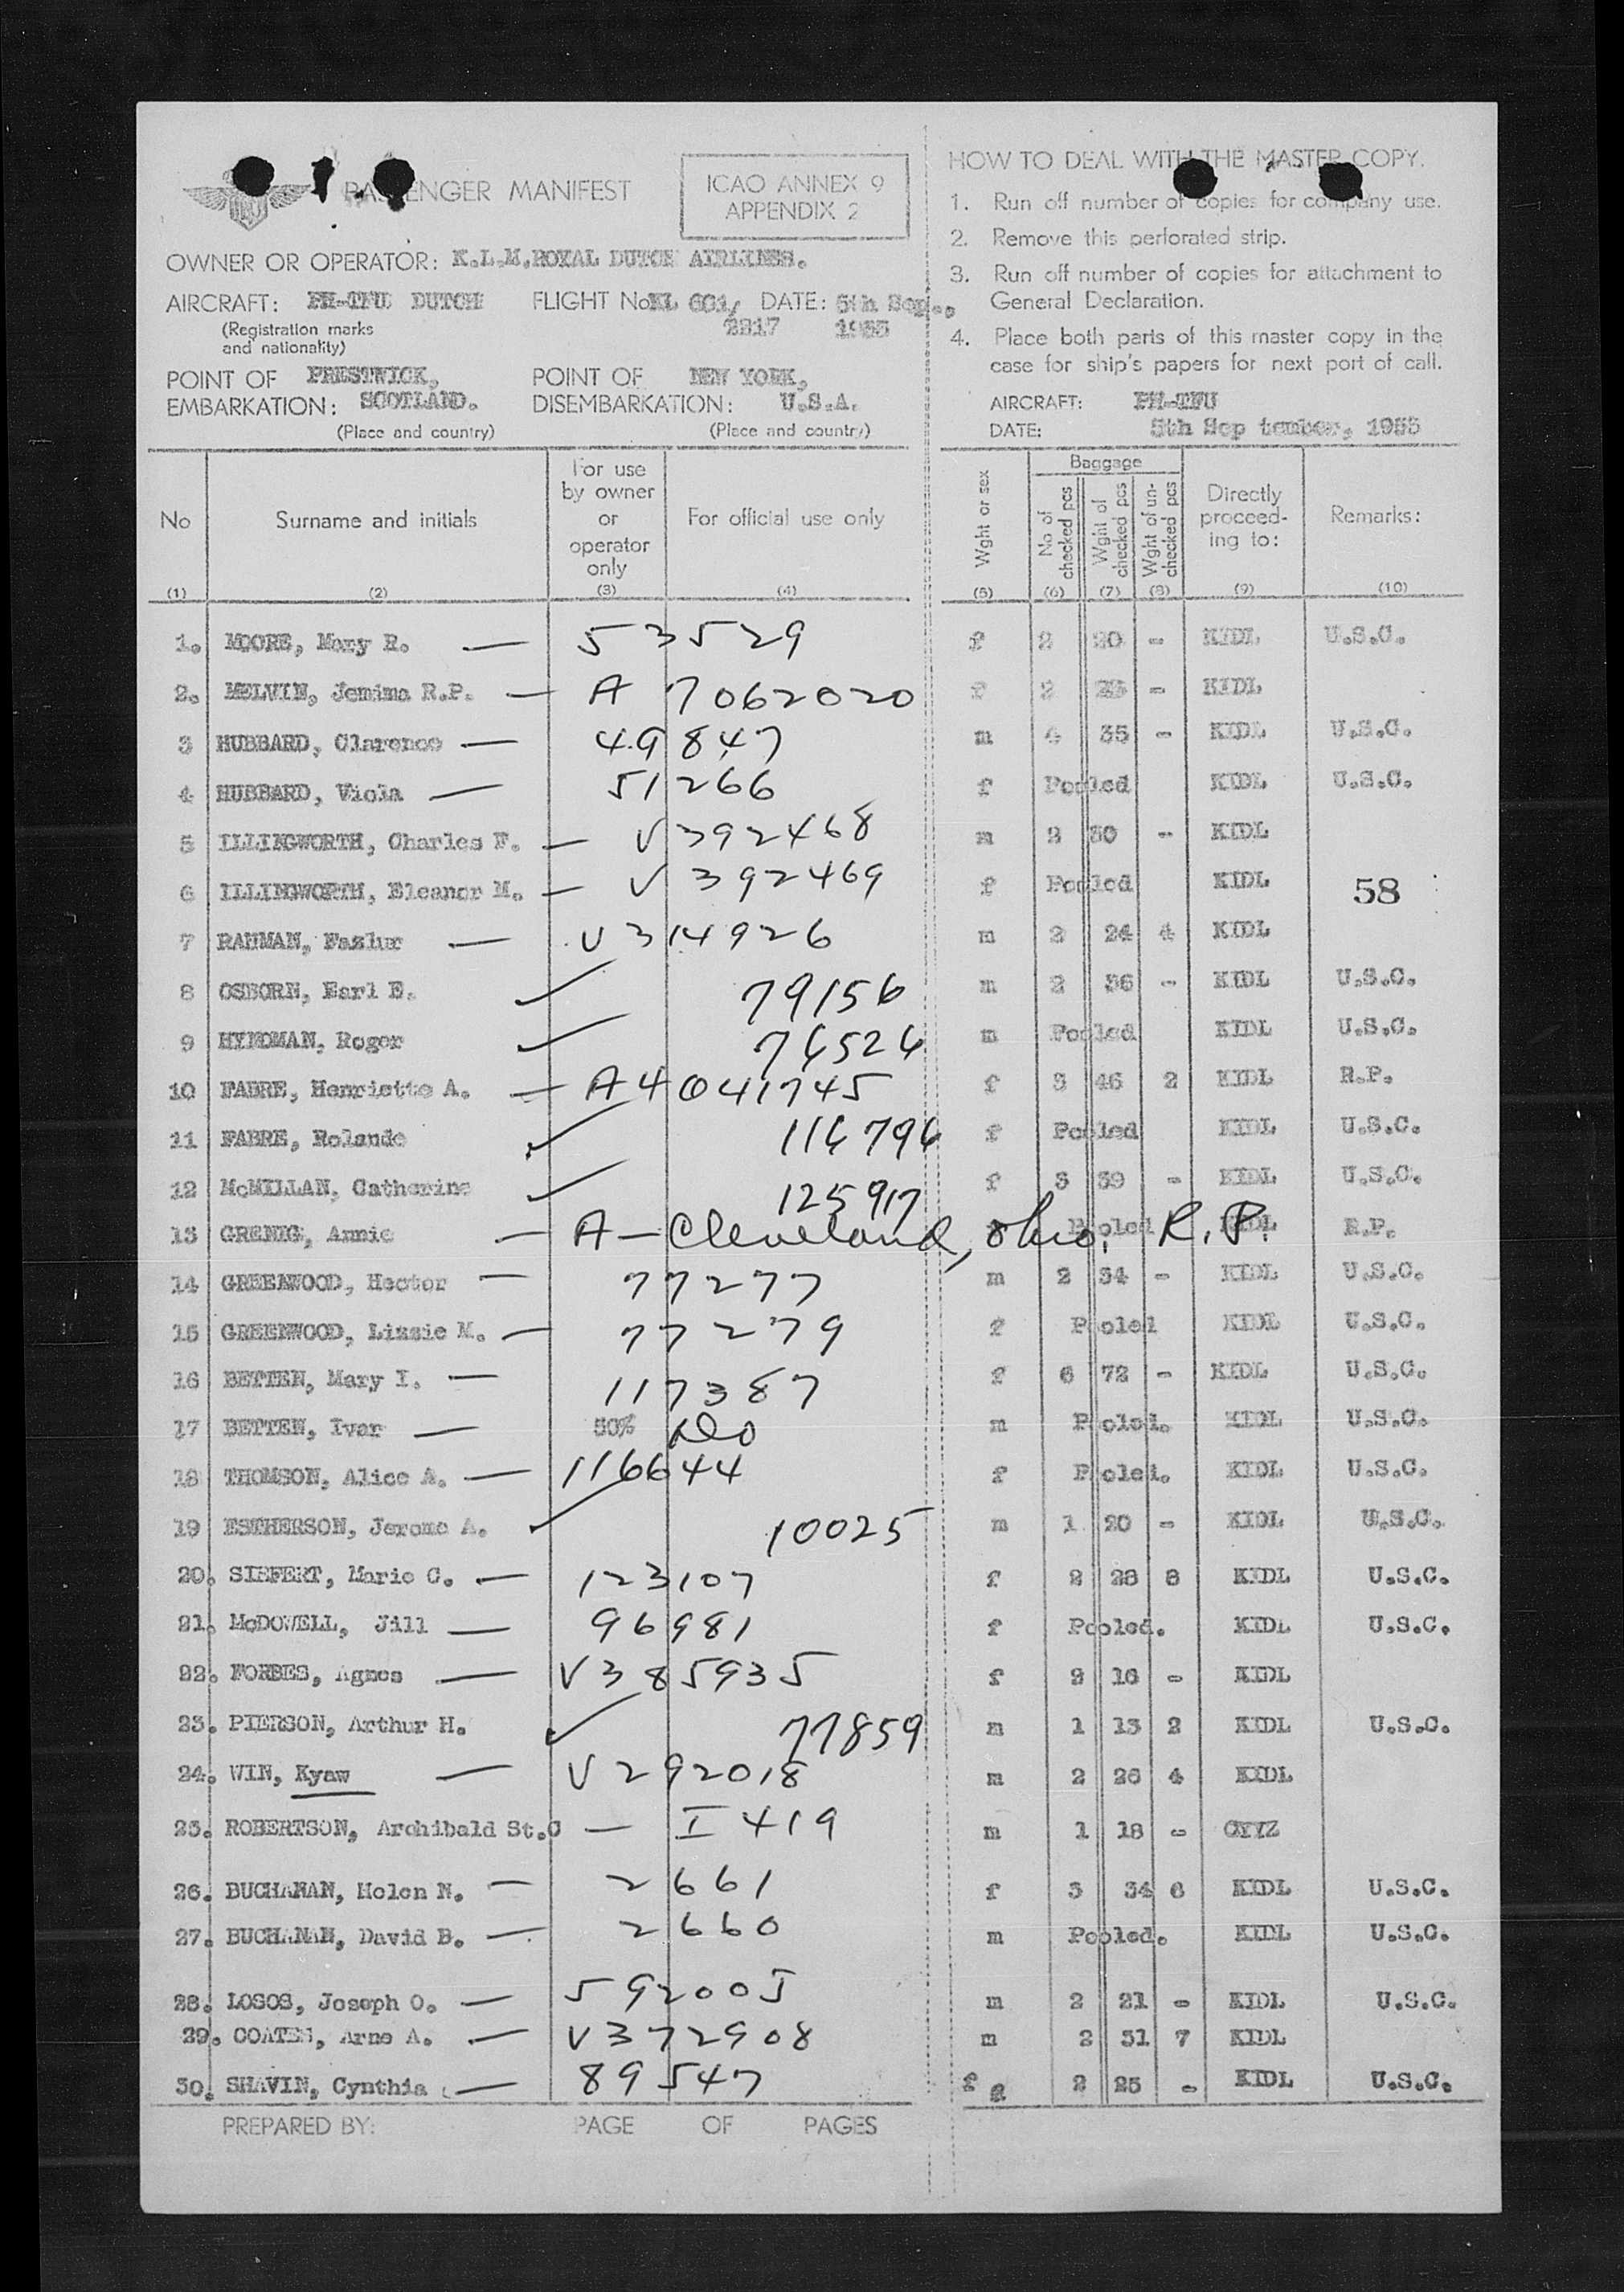 PASSENGER MANIFEST
ICAO ANNEX 9
APPENDIX 2
OWNER OR OPERATOR: K.L.M.ROYAL DUTCH AIRLINES.
AIRCRAFT: PH-TFU DUTCH FLIGHT No KL 661/ DATE: 5th Sep.,
(Registration marks 2217 1955
and nationality)
POINT OF PRESTWICK, POINT OF NEW YORK,
EMBARKATION: SCOTLAND. DISEMBARKATION: U.S.A.
(Place and country) (Place and country)
HOW TO DEAL WITH THE MASTER COPY.
1. Run off number of copies for company use.
2. Remove this perforated strip.
3. Run off number of copies for attachment to
General Declaration.
4. Place both parts of this master copy in the
case for ship's papers for next port of call.
AIRCRAFT: PH-TFU
DATE: 5th Sep tember, 1955
No Surname and initials For use by owner or operator only For official use only Wght or sex Baggage No of checked pcs Wght of checked pcs Wght of un-checked pcs Directly proceed-ing to: Remarks:
(1) (2) (3) (4) (5) (6) (7) (8) (9) (10)
1. MOORE, Mary R. — 53529 f 2 20 - KIDL U.S.C.
2. MELVIN, Jemima R.P. — A 7062020 f 2 23 - KIDL
3 HUBBARD, Clarence — 49847 m 4 35 - KIDL U.S.C.
4 HUBBARD, Viola — 51266 f Pooled KIDL U.S.C.
5 ILLINGWORTH, Charles F. — V 392468 m 2 30 - KIDL
6 ILLINGWORTH, Eleanor M. — V 392469 f Pooled KIDL 58
7 RAHMAN, Fazlur — V 314926 m 2 24 4 KIDL
8 OSBORN, Earl E. ✓ 79156 m 2 36 - KIDL U.S.C.
9 HYNDMAN, Roger ✓ 76526 m Pooled KIDL U.S.C.
10 FABRE, Henriette A. — A4 041745 f 3 46 2 KIDL R.P.
11 FABRE, Rolande ✓ 116796 f Pooled KIDL U.S.C.
12 McMILLAN, Catherine ✓ 125917 f 3 39 - KIDL U.S.C.
13 GRENIG, Annie — A — Cleveland, Ohio. R.P. Pooled KIDL R.P.
14 GREENWOOD, Hector — 77277 m 2 34 - KIDL U.S.C.
15 GREENWOOD, Lizzie M. — 77279 f Pooled KIDL U.S.C.
16 BETTEN, Mary I. — 117387 f 6 72 - KIDL U.S.C.
17 BETTEN, Ivar — 50% do m Pooled. KIDL U.S.C.
18 THOMSON, Alice A. — 116644 f Pooled. KIDL U.S.C.
19 ESTHERSON, Jerome A. ✓ 10025 m 1 20 - KIDL U.S.C.
20. SIEFERT, Marie C. — 123107 f 2 28 8 KIDL U.S.C.
21. McDOWELL, Jill — 96981 f Pooled. KIDL U.S.C.
22. FORBES, Agnes — V385935 f 2 16 - KIDL
23. PIERSON, Arthur H. ✓ 77859 m 1 13 2 KIDL U.S.C.
24. WIN, Kyaw — V 292018 m 2 26 4 KIDL
25. ROBERTSON, Archibald St.C — I 419 m 1 18 - CYYZ
26. BUCHANAN, Helen N. — 2661 f 3 34 6 KIDL U.S.C.
27. BUCHANAN, David B. — 2660 m Pooled. KIDL U.S.C.
28. LOSOS, Joseph O. — 592005 m 2 21 - KIDL U.S.C.
29. COATES, Arne A. — V372908 m 2 31 7 KIDL
30. SHAVIN, Cynthia — 89547 f 2 25 - KIDL U.S.C.
PREPARED BY: PAGE OF PAGES